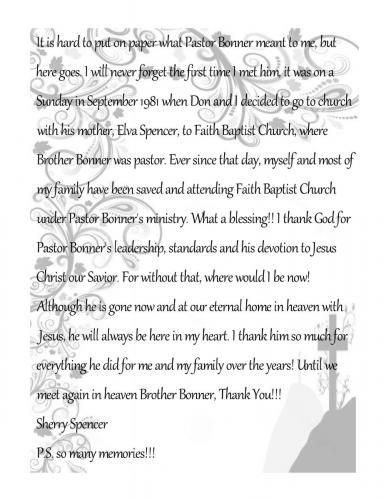 It is hard to put on paper what Pastor Bonner meant to me, but
here goes. I will never forget the first time I met him, it was on a
Sunday in September 1981 when Don and I decided to go to church
with his mother, Elva Spencer, to Faith Baptist Church, where
Brother Bonner was pastor. Ever since that day, myself and most of
my family have been saved and attending Faith Baptist Church
under Pastor Bonner's ministry. What a blessing!! I thank God for
Pastor Bonner's leadership, standards and his devotion to Jesus
Christ our Savior. For without that, where would I be now!
Although he is gone now and at our eternal home in heaven with
Jesus, he will always be here in my heart. I thank him so much for
everything he did for me and my family over the years! Until we
meet again in heaven Brother Bonner, Thank You!!!
Sherry Spencer
P.S. so many memories!!!